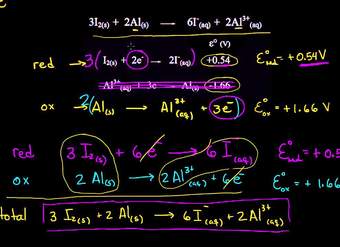 3I₂(s) + 2Al(s) → 6I⁻(aq) + 2Al³⁺(aq)
ε° (V)
red → 3( I₂(s) + 2e⁻ → 2I⁻(aq) ) +0.54 ε°red = +0.54 V
Al³⁺(aq) + 3e⁻ → Al(s) -1.66
ox → 2( Al(s) → Al³⁺(aq) + 3e⁻ ) ε°ox = +1.66 V
red 3 I₂(s) + 6e⁻ → 6 I⁻(aq) ε°red = +0.5
ox 2 Al(s) → 2 Al³⁺(aq) + 6e⁻ ε°ox = +1.66
total 3 I₂(s) + 2 Al(s) → 6 I⁻(aq) + 2Al³⁺(aq)